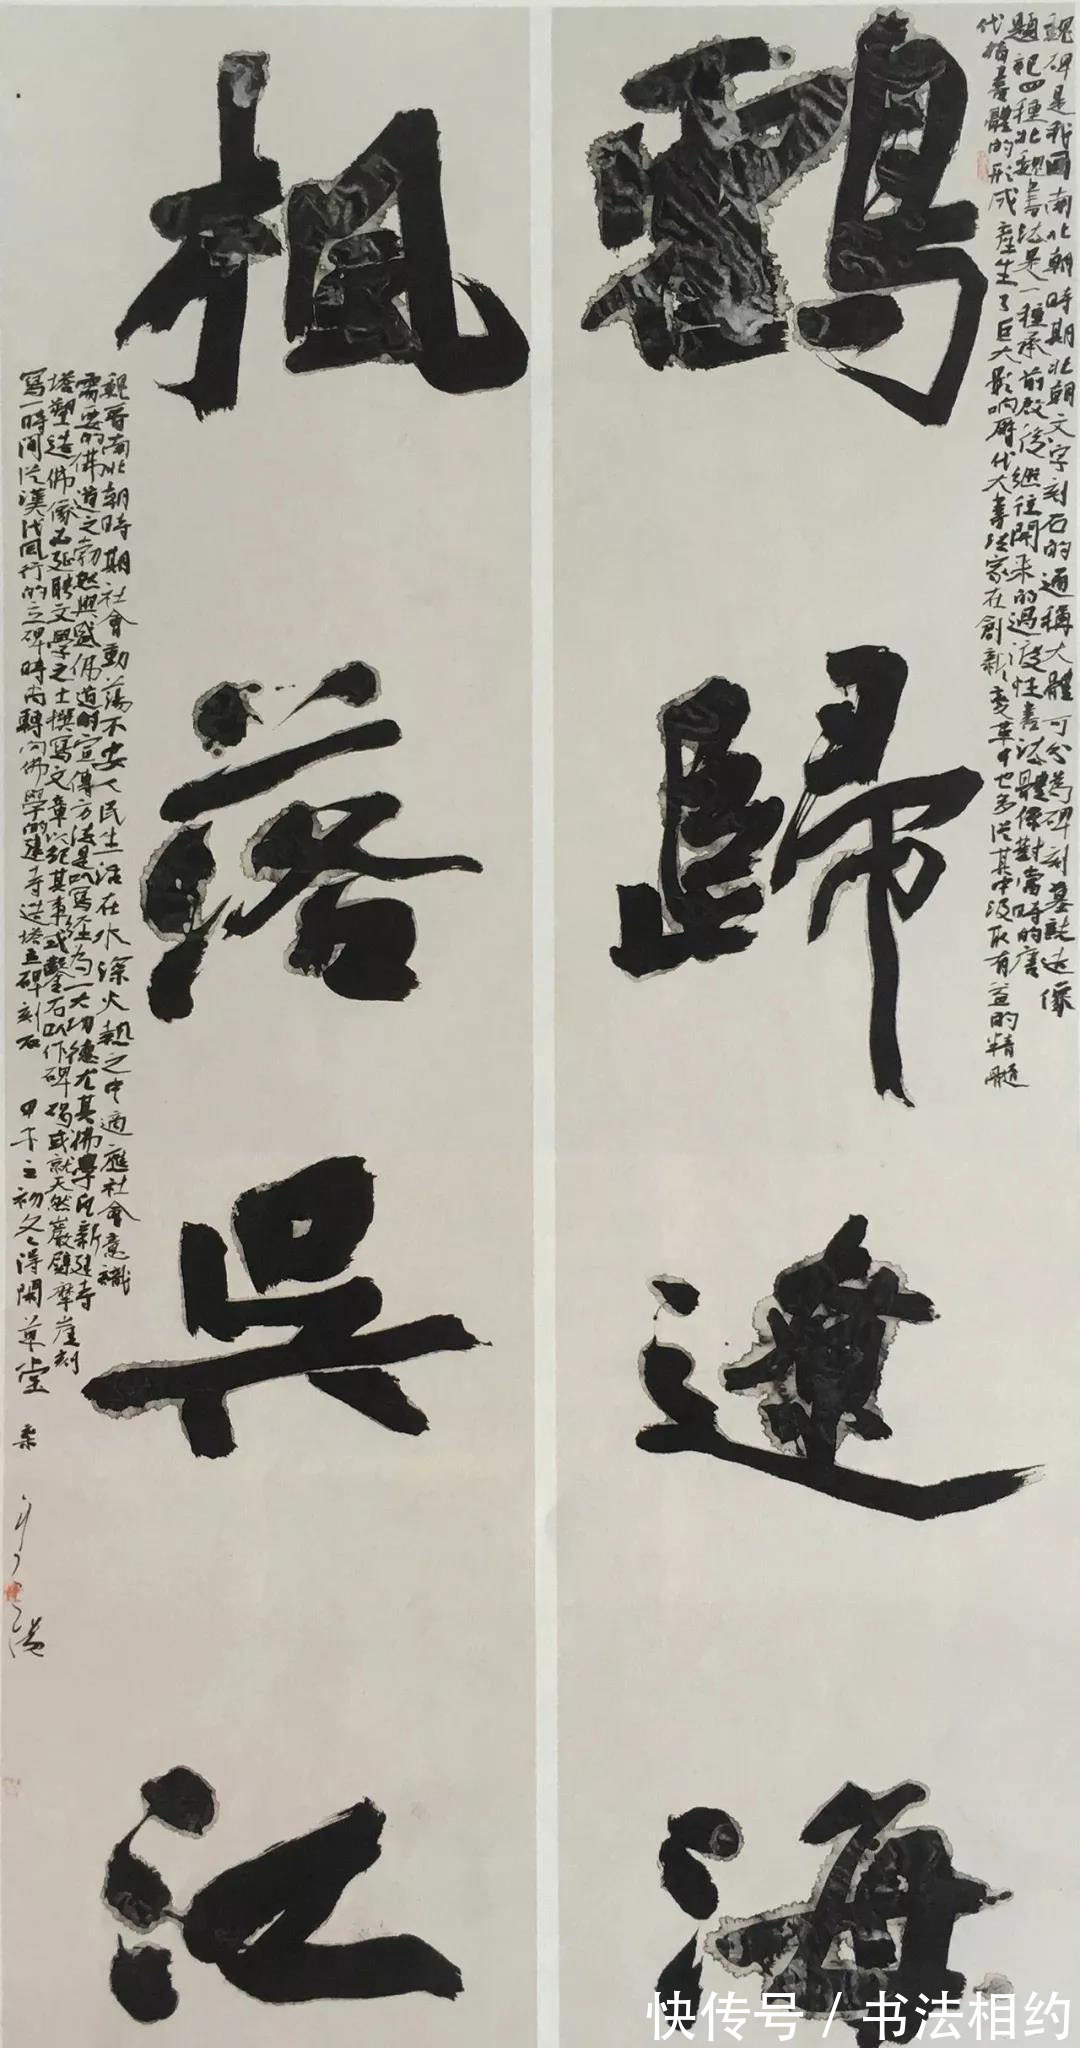 魏碑是我國南北朝時期北朝文字刻石的通稱大體可分為碑刻墓誌造像
題記四種北魏書法是一種承前啟後繼往開來的過渡性書法體係對當時的唐
代楷書體的形成產生了巨大影响歷代大書法家在創新變革中也多從其中汲取有益的精髓
鶴歸遼海
楓落吳江
魏晉南北朝時期社會動蕩不安人民生活在水深火熱之中適應社會意識
需要的佛道之勃然興盛佛道的宣傳方法是以寫經為一大功德尤其佛學氏新建寺
塔塑造佛像必延聘文學之士撰寫文章以紀其事或鑿石以作碑碣或就天然巖壁摩崖刻
寫一時間從漢代風行的立碑時尚轉向佛學的建寺造塔立碑刻石 甲午之初冬得閑草堂
快传号/书法相约